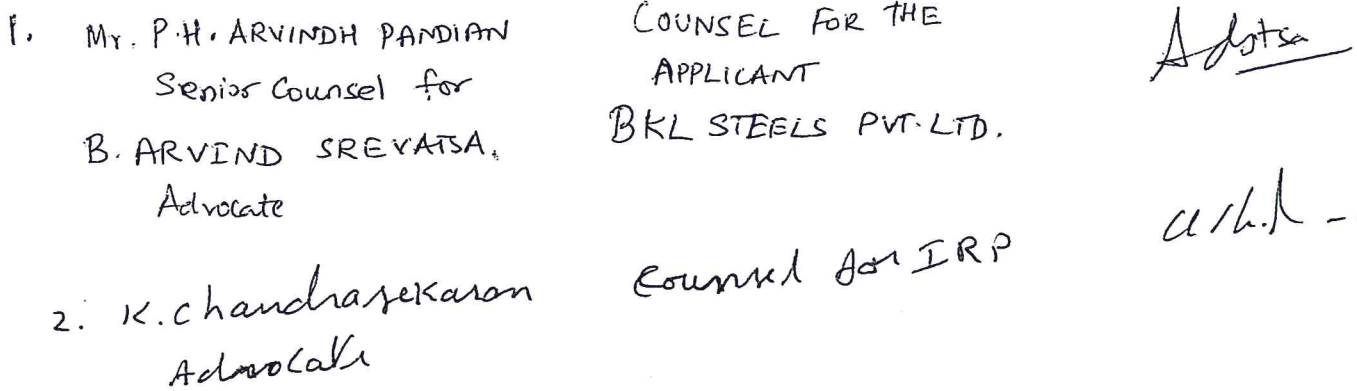 1. Mr. P.H. ARVINDH PANDIAN
Senior Counsel for
B. ARVIND SREVATSA,
Advocate
COUNSEL FOR THE
APPLICANT
BKL STEELS PVT. LTD.
2. K. Chandrasekaran
Advocate
Counsel for IRP